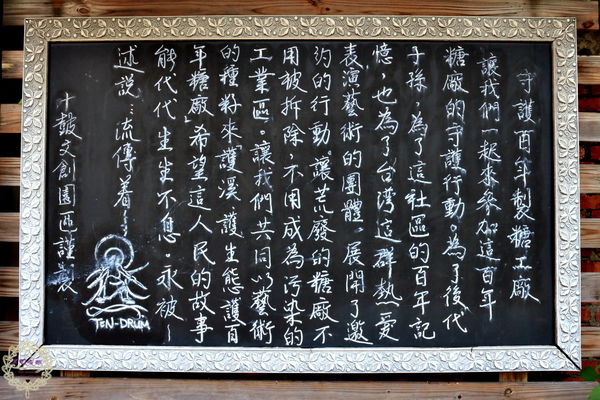 守護百年製糖工廠
讓我們一起來參加這百年
糖廠的守護行動。為了後代
子孫,為了這社區的百年記
憶,也為了台灣這群熱愛
表演藝術的團體,展開了邀
約的行動。讓荒廢的糖廠不
用被拆除,不用成為污染的
工業區。讓我們共同以藝術
的種籽來「護溪護生態護百
年糖廠」希望這人民的故事
能代代生生不息。永被~
述說…流傳着~~
十鼓文創園區謹製
TEN-DRUM